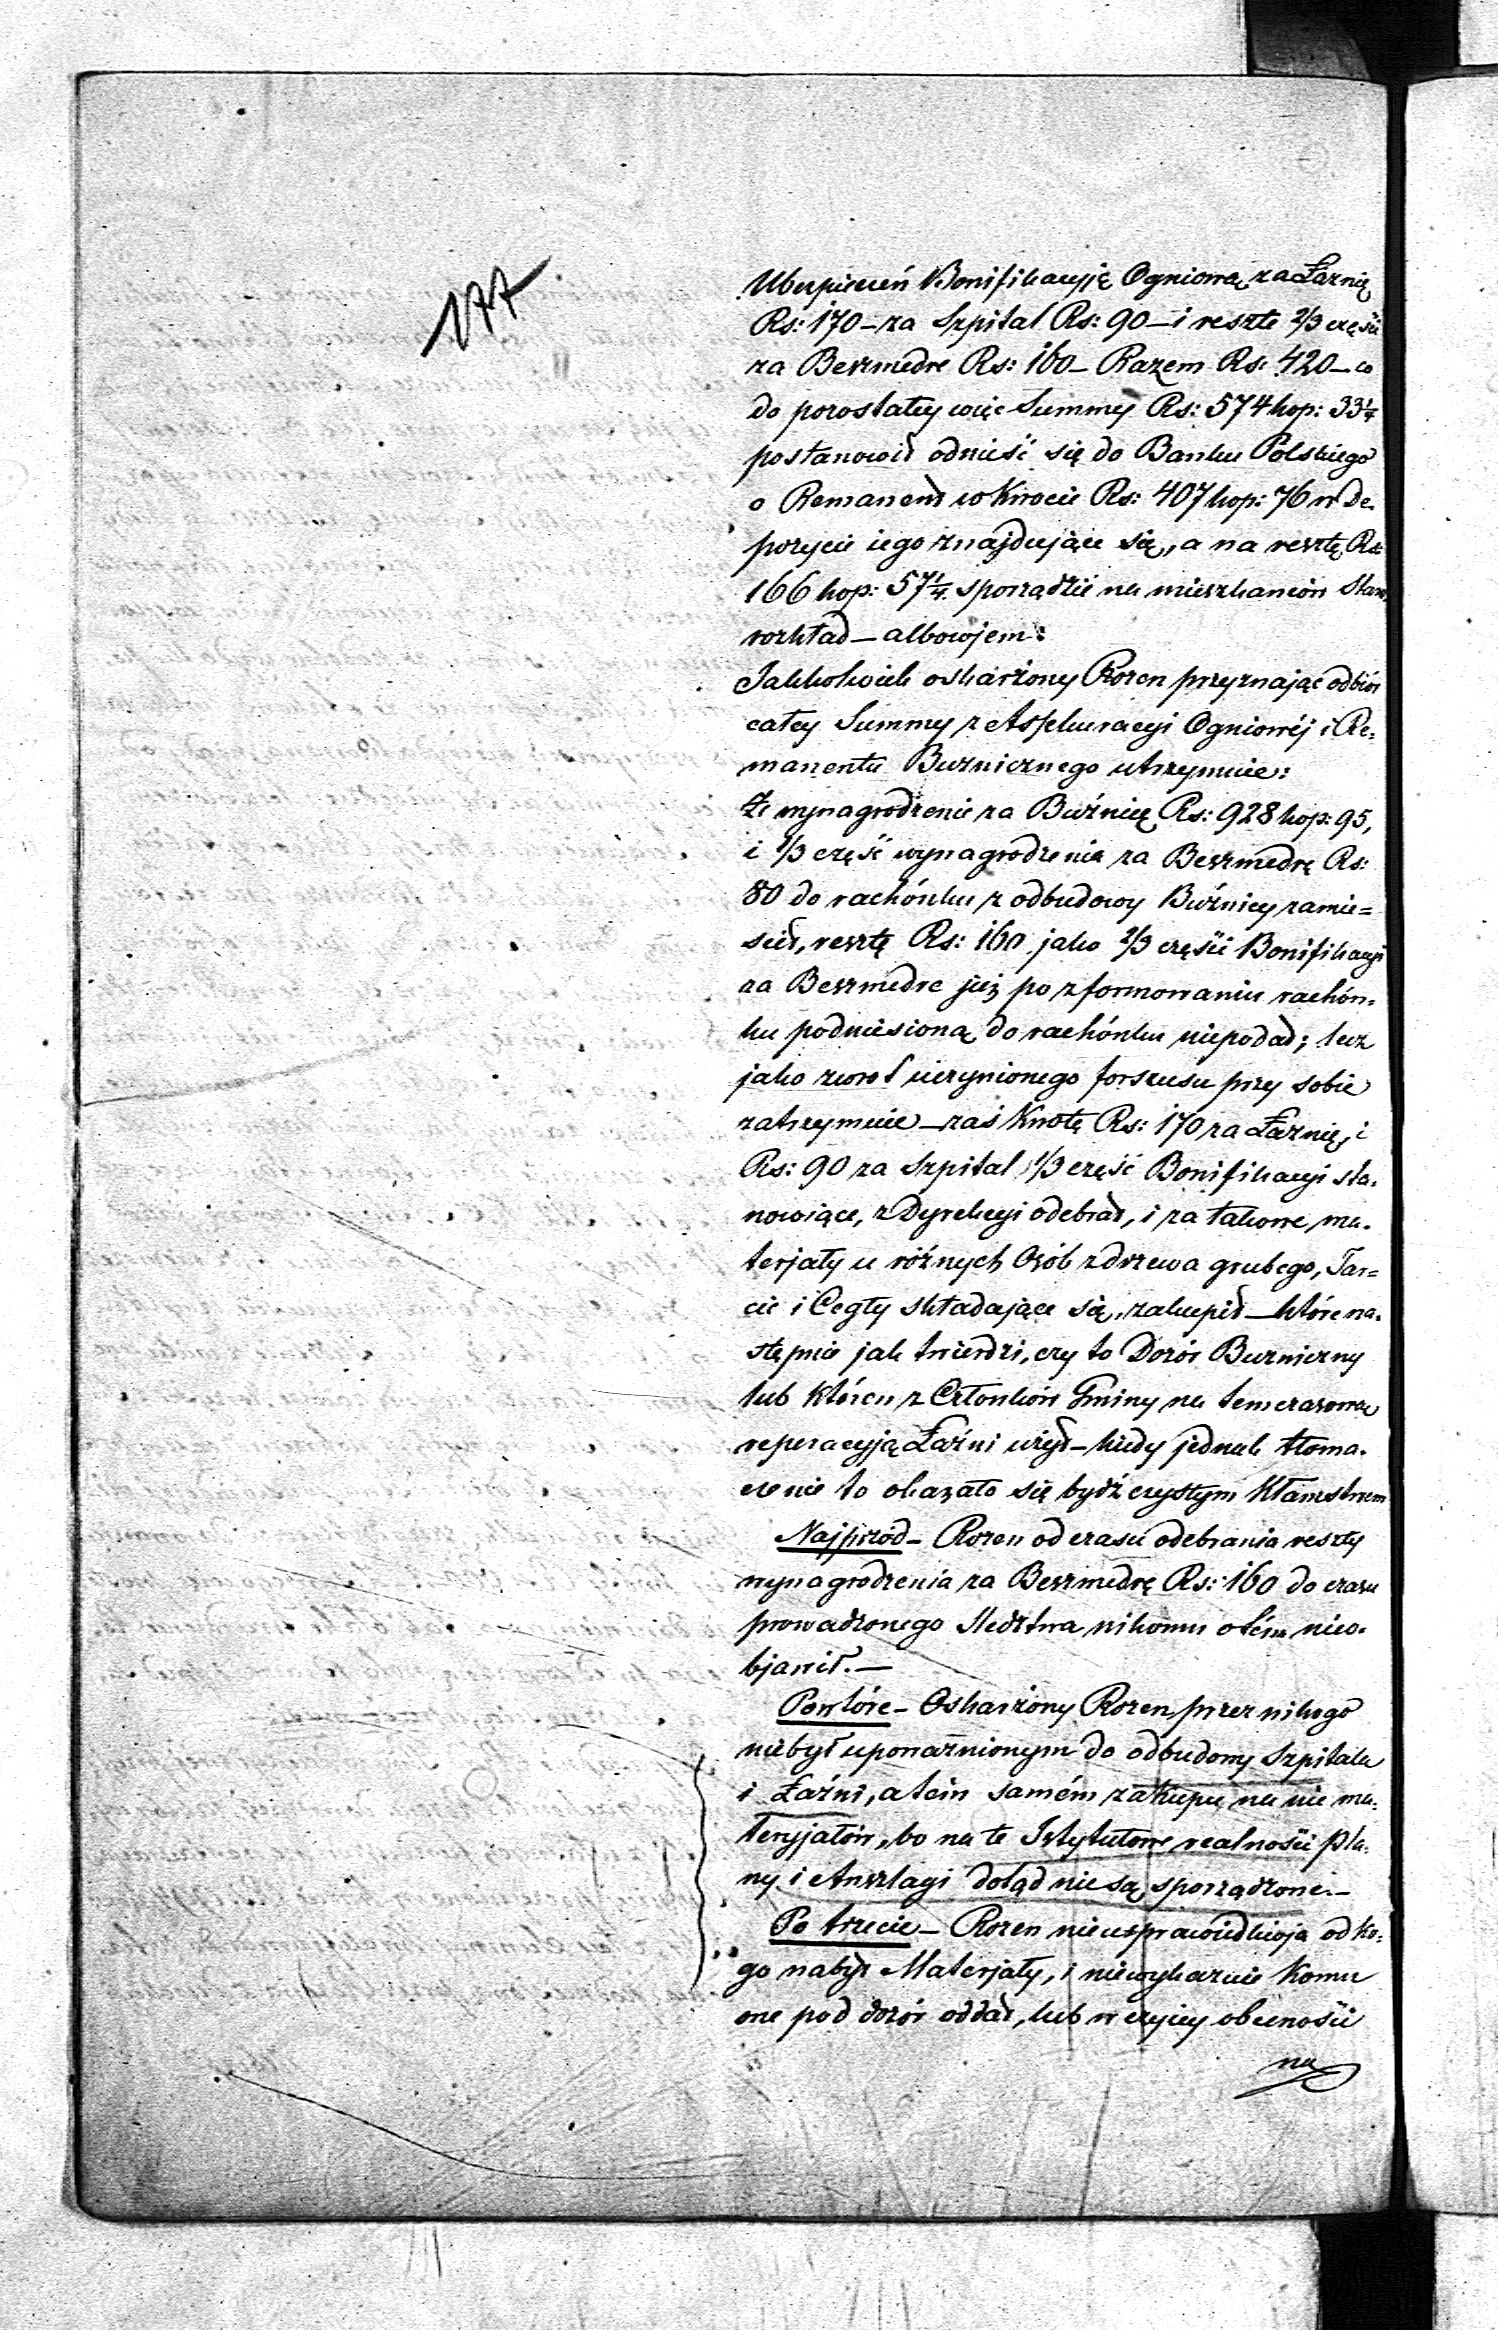 177
Ubespieceń Bonifikacyję Ogniową za Łaznię
Rs: 170 – za Szpital Rs: 90 – i resztę 2/3 części
za Beszmedre Rs: 160 – Razem Rs: 420 – co
do pozostałey więc Summy Rs: 574 kop: 33¼
postanowił odnieść się do Banku Polskiego
o Remanent w Kwocie Rs: 407 kop: 76 w De-
pozycie iego znajdujące się, a na resztę Rs:
166 kop: 57¼ sporządzić na mieszkanców Star:
rozkład – albowjem:
Jakkolwiek oskarżony Rozen przyznając odbiór
całey Summy z Assekuracyi Ogniowéj i Re=
manentu Buznicznego utrzymuie:
Że wynagrodzenie za Buźnicę Rs: 928 kop: 95,
i 1/3 część wynagrodzenia za Beszmedrę Rs:
80 do rachónku z odbudowy Buźnicy zamie=
scił, resztę Rs: 160 jako 2/3 części Bonifikacyi
za Beszmedre już po zformowaniu rachón=
ku podniesioną do rachónku niepodał; lecz
jako zwrot uczynionego forszusu przy sobie
zatrzymuie – zaś Kwotę Rs: 170 za Łaznię, i
Rs: 90 za Szpital 1/3 część Bonifikacyi sta-
nowiące, z Dyrekcyi odebrał, i za takowe ma-
terjały u różnych Osób z drzewa grubego, Tar=
cic i Cegły składające się, zakupił – które na-
stępnie jak twierdzi, czy to Dozór Buzniczny
lub któren z Członków Gminy na temczasową
reperacyją Łaźni użył – kiedy jednak tłoma-
czenie to okazało się bydź czystym Kłamstwem
Najprzod – Rozen od czasu odebrania reszty
wynagrodzenia za Beszmedrę Rs: 160 do czasu
prowadzonego Sledztwa nikomu o tém nieo-
bjawił. –
Powtóre – Oskarżony Rozen przez nikogo
niebył upoważnionym do odbudowy Szpitala
i Łaźni, a tem samém zakupu na nie ma=
teryjałów, bo na te Istytutowe realności pla-
ny i Anszlagi dotąd nie są sporządzone. –
Po trzecie – Rozen nieusprawiedliwia od ko=
go nabył Materjały, i niewykazuie Komu
one pod dozór oddał, lub w czyiey obecności
na